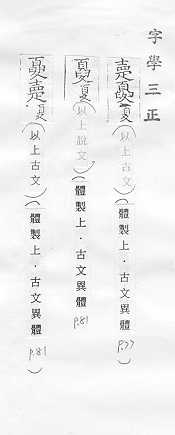 字學三正
夏(以上古文)(體製上.古文異體 P.77)
夏(以上說文)(體製上.古文異體 P.81)
夏(以上古文)(體製上.古文異體 P.81)